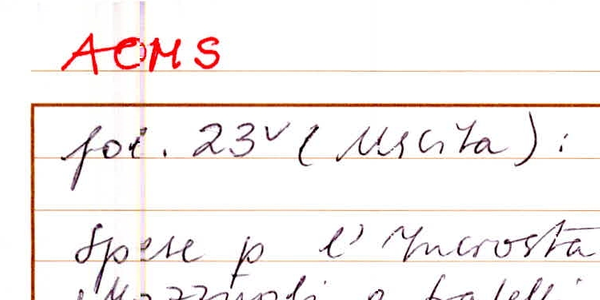 AOMS
fol. 23v (Uscita):
Spese p l'Incrosta